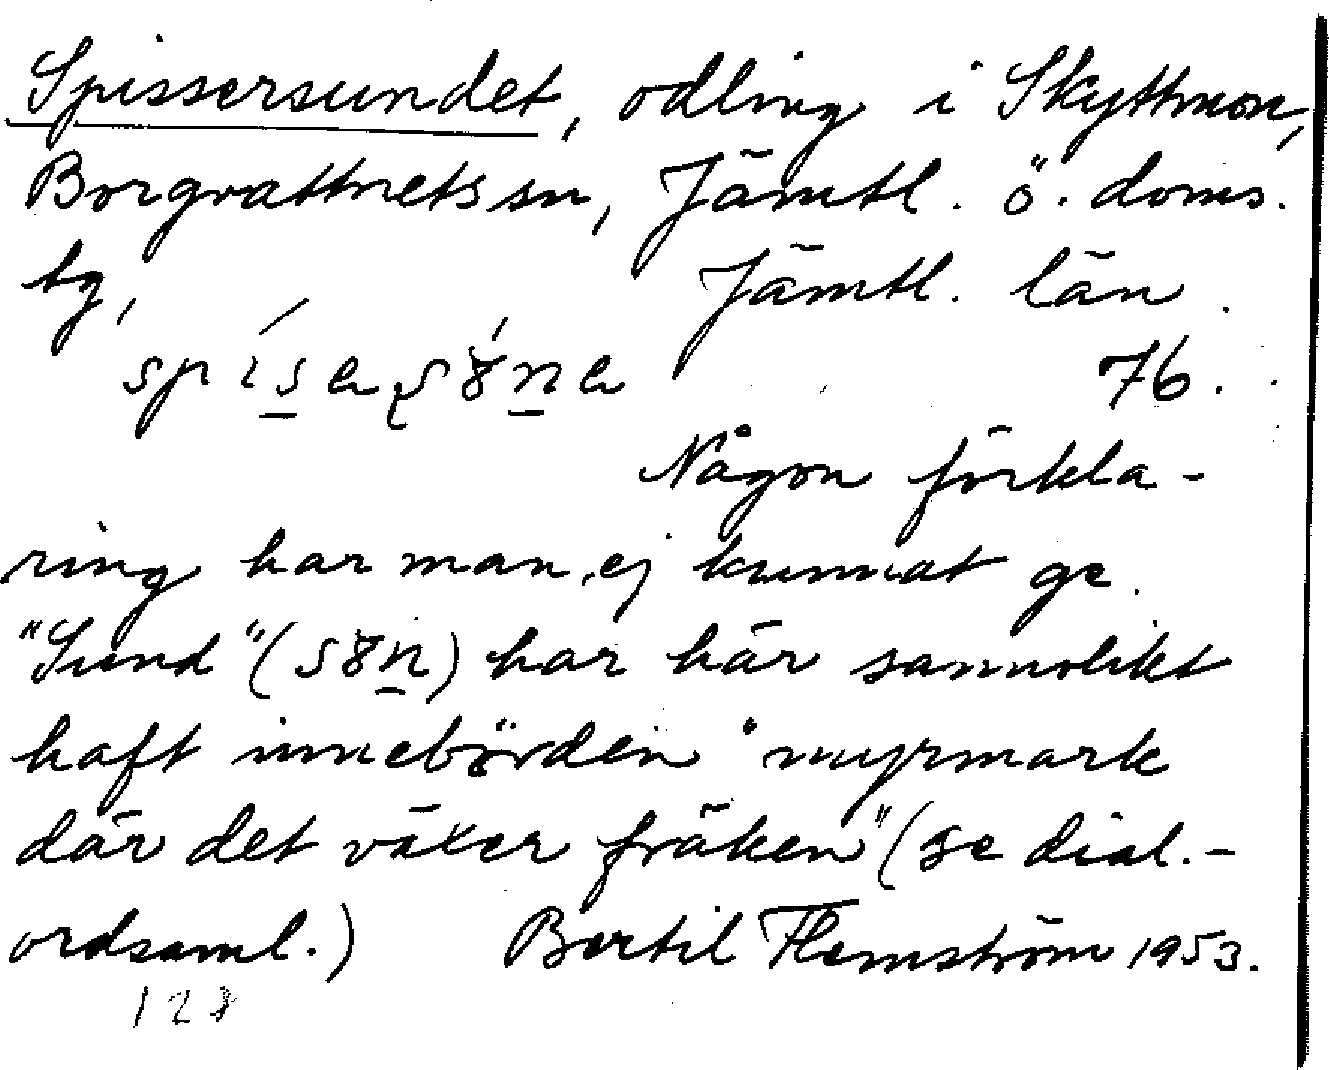 Spissersundet, odling i Skyttmon,
Borgvattnets sn, Jämtl. ö. doms.
tg, Jämtl. län.
76.
Någon förkla-
ring har man ej kunnat ge.
"Sund" (s8n) har här sannolikt
haft innebörden "myrmark
där det växer fräken" (se dial.-
ordsaml.) Bertil Flemström 1953.
128